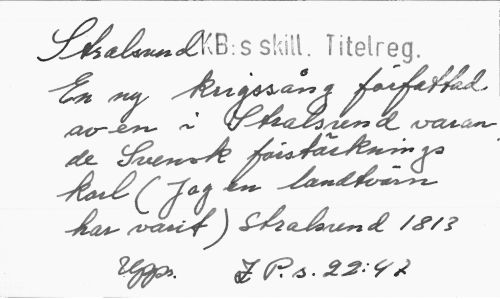 Stralsund KB:s skill. Titelreg.
En ny krigssång författad
av en i Stralsund varan
de Svensk förstärknings
karl (Jag en landtvärn
har varit) Stralsund 1813
Upps. Z P. s. 22:42